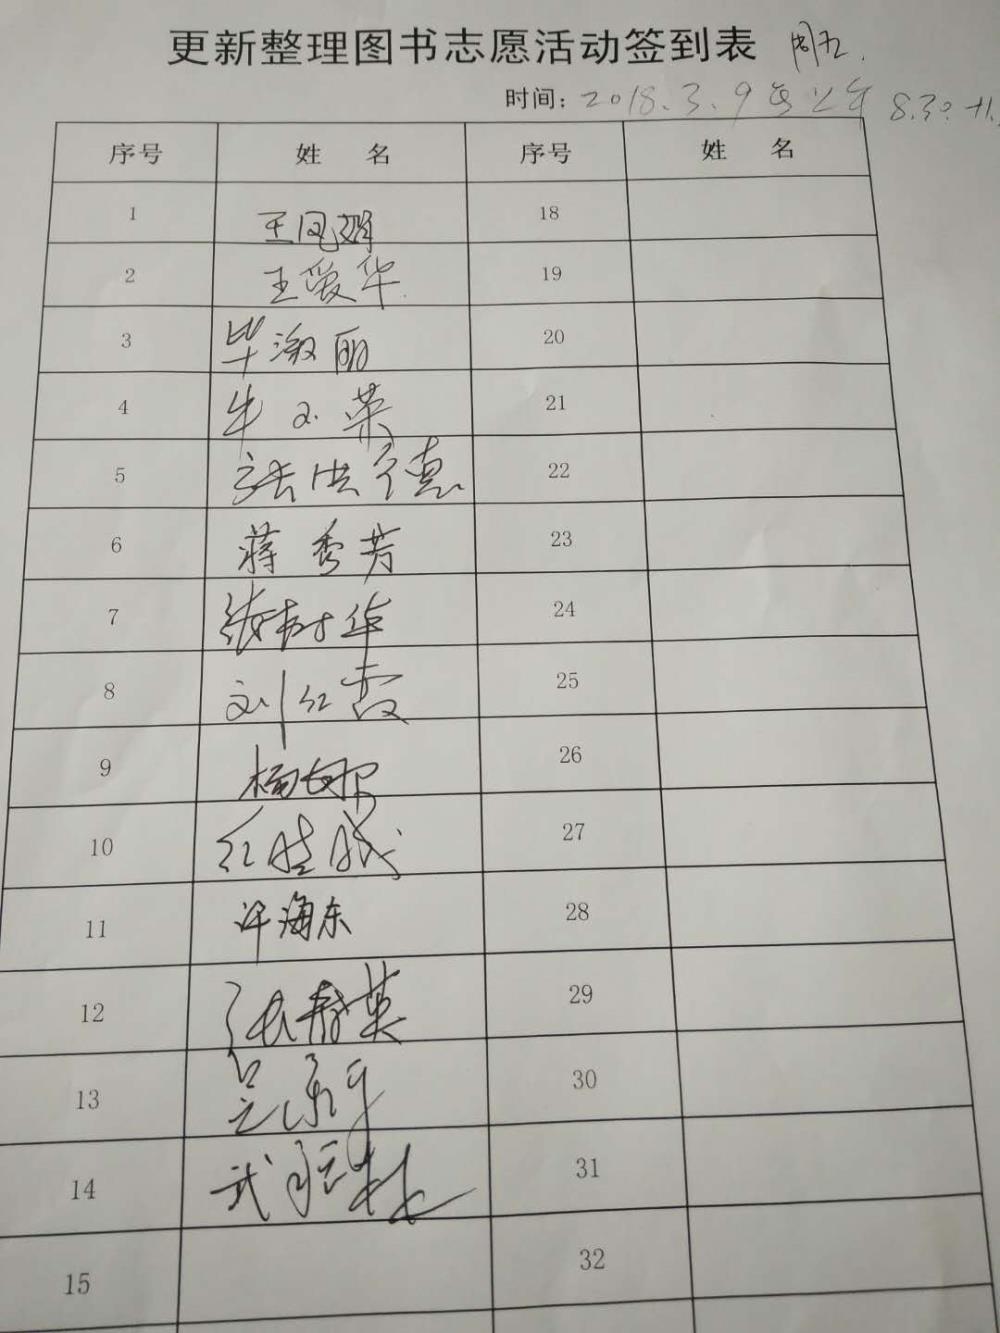 更新整理图书志愿活动签到表 周五.
时间: 2018.3.9 上午 8.30
序号 姓 名 序号 姓 名
1 王凤娟 18
2 王爱华 19
3 毕淑丽 20
4 牛 荣 21
5 张洪德 22
6 蒋秀芳 23
7 张树华 24
8 刘红霞 25
9 杨 26
10 27
11 许海东 28
12 张静英 29
13 30
14 武 31
15 32